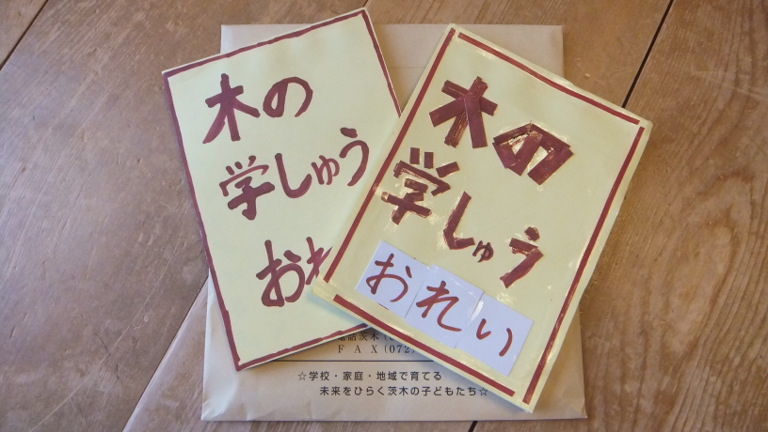 木の
学しゅう
おれ
木の
学しゅう
おれい
電話茨木(0
FAX(072)
☆学校・家庭・地域で育てる
未来をひらく茨木の子どもたち☆